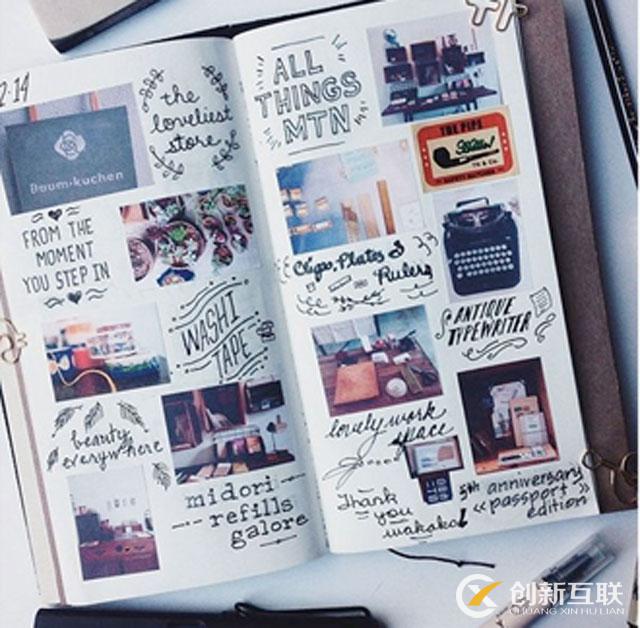 2·14
the
loveliest
store
Baum·kuchen
FROM THE
MOMENT
YOU STEP IN
WASHI
TAPE
beauty
everywhere
midori
refills
galore
ALL
THINGS
MTN
THE PIPE
SAFETY MATCHES
Clips, Plates &
Rulers
ANTIQUE
TYPEWRITER
lovely work
space
Thank
you
wakako!
5th anniversary
"passport"
edition
创新互联
CHUANG XIN HU LIAN